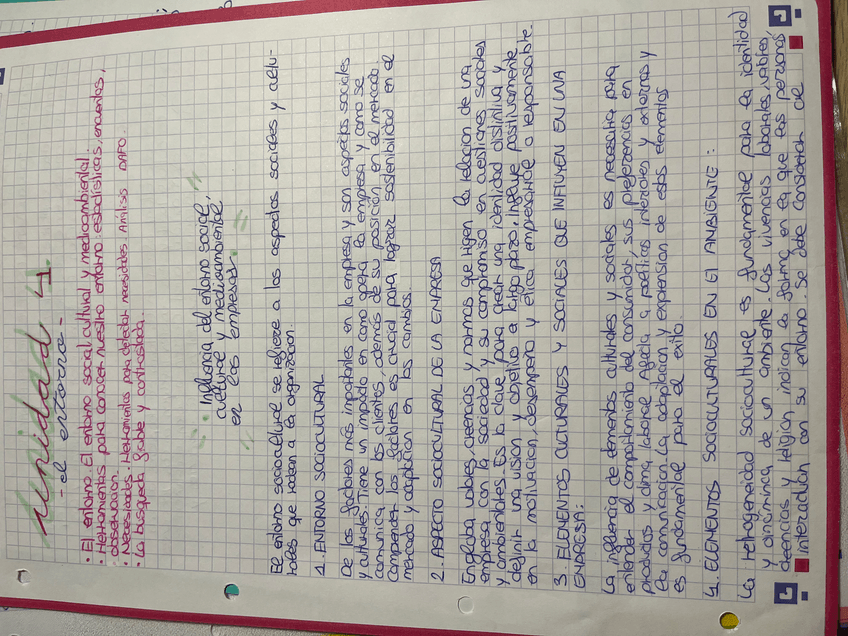 unidad 4.
- el entorno -
• El entorno. El entorno social, cultural y medioambiental.
• Herramientas para conocer nuestro entorno: estadísticas, encuestas,
observación.
• Necesidades. Herramientas para detectar necesidades. Análisis DAFO.
• La búsqueda fiable y contrastada.
Influencia del entorno social,
cultural y medioambiental,
en las empresas.
El entorno sociocultural se refiere a los aspectos sociales y cultu-
rales que rodean a la organización.
1. ENTORNO SOCIOCULTURAL
De los factores más importantes en la empresa y son aspectos sociales
y culturales. Tiene un impacto en como opera la empresa y como se
comunica con los clientes, además de su posición en el mercado.
Comprender los factores es crucial para lograr sostenibilidad en el
mercado y adaptación en los cambios.
2. ASPECTO SOCIOCULTURAL DE LA EMPRESA
Engloba valores, creencias y normas que rigen la relación de una
empresa con la sociedad y su compromiso en cuestiones sociales
y ambientales. Es la clave para crear una identidad distintiva y
definir una visión y objetivo a largo plazo, influye positivamente
en la motivación, desempeño y ética empresarial o responsable.
3. ELEMENTOS CULTURALES Y SOCIALES QUE INFLUYEN EN UNA
EMPRESA:
La influencia de elementos culturales y sociales es necesaria para
entender el comportamiento del consumidor, sus preferencias en
productos y clima laboral afecta a políticas internales y externas y
la comunicación. La adaptación y exprensión de estos elementos
es fundamental para el éxito.
4. ELEMENTOS SOCIOCULTURALES EN EL AMBIENTE:
La heterogeneidad sociocultural es fundamental para la identidad
y dinámica de un ambiente. Las vivencias laborales, valores,
creencias y religión indican la forma en la que las personas
interactúan con su entorno. Se debe considerar al